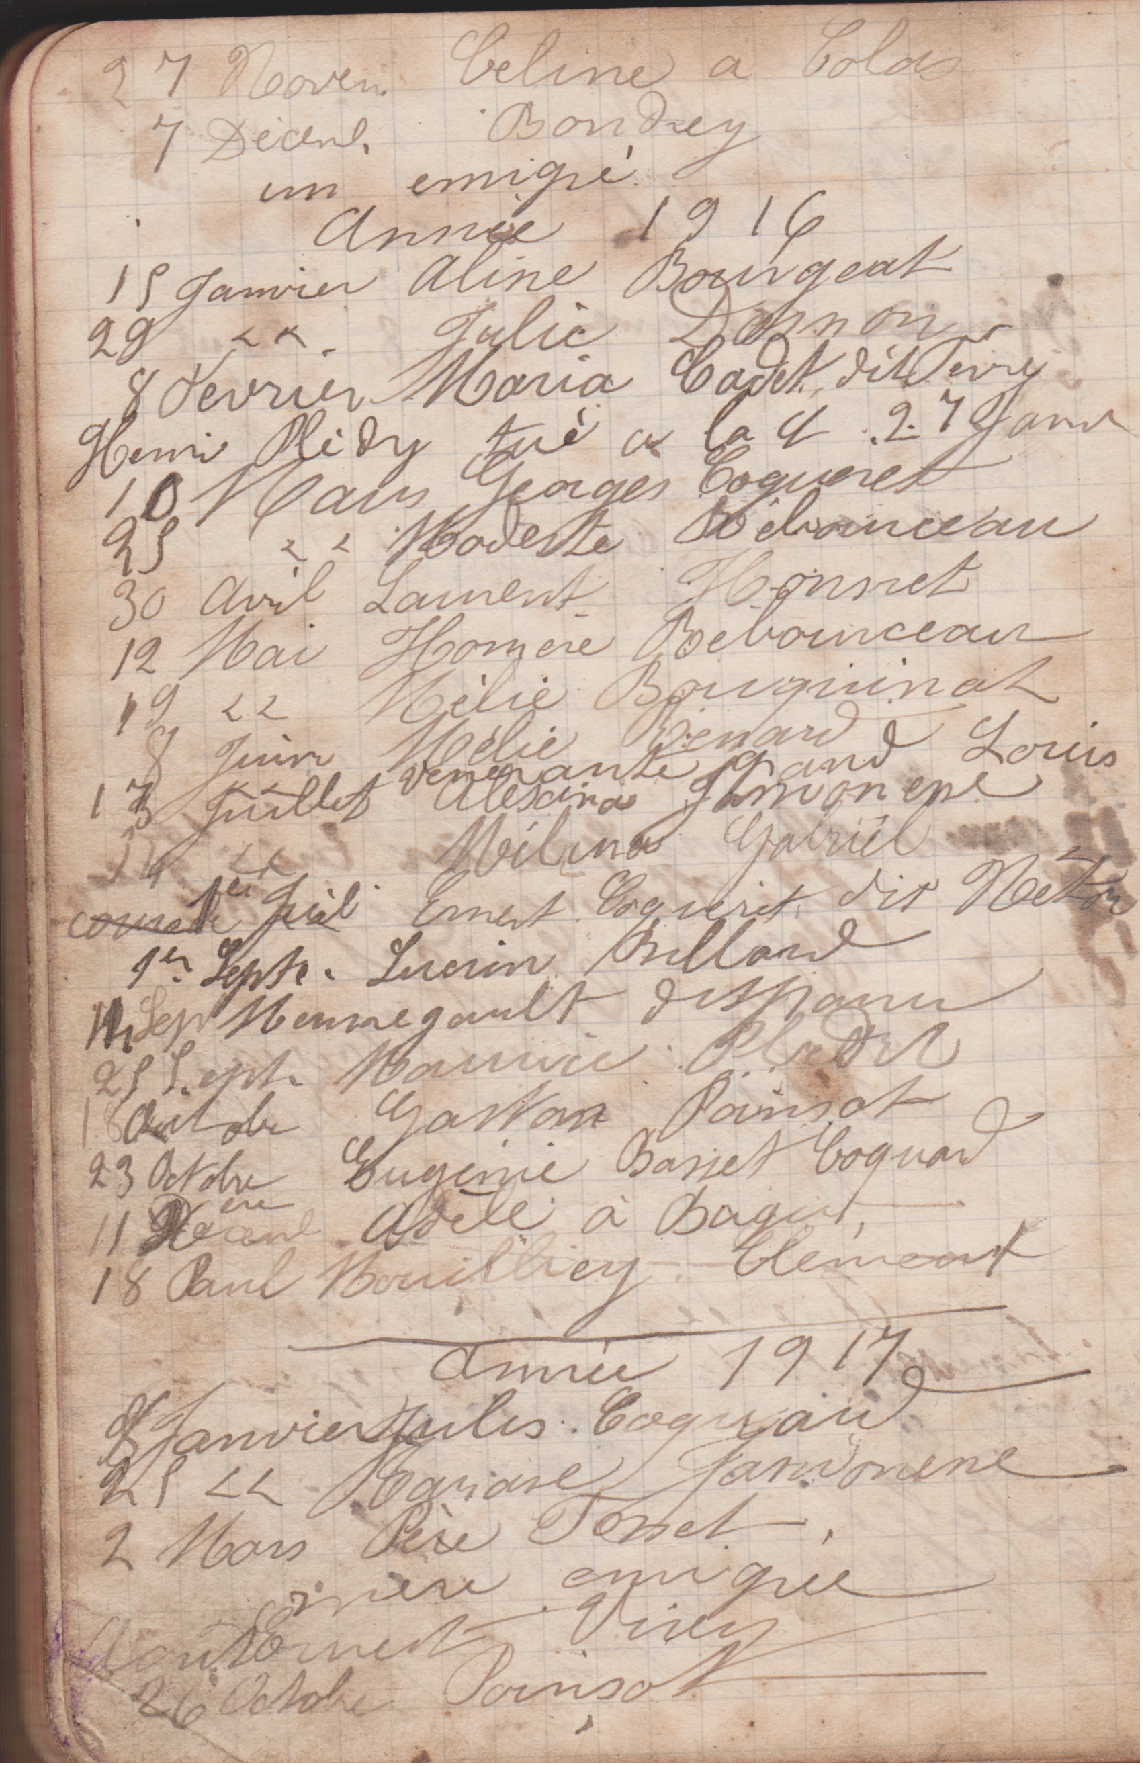 27 Noven. Celine a Colas
7 Décemb. Bondrey
un emigré
Année 1916
15 Janvier Aline Bourgeat
29 << Julie Donnon
8 Fevrier Maria Cadet dit Ferry
Henri Plédy tué a la g 27 Janv
10 Mars Georges Coqueret
25 << Modeste Bébouceau
30 Avril Laurent Honnet
12 Mai Homère Bebouceau
19 << Mélie Bouquinat
8 Juin Mélie Renard
venerante grand Louis
13 Juillet Alexcina Jannonene
14 << Mélina Gabriel
1er Juil Ernest Coqueret dit Nétor
1er Septe. Lucien Billard
14 Sep Meunegault disparu
25 Sept. Maurice Pledy
18 Octobre Gaston Poinsot
23 Octobre Eugénie Basset Coquard
11 Adèle à Bagu
18 Paul Mouilliey Clément
année 1917
8 Janvier Jules Coquard
25 << Mariane Jannonene
2 Mars Père Tosset
mère emigrée
Aout Ernest Virey
26 Octobre Poinsot